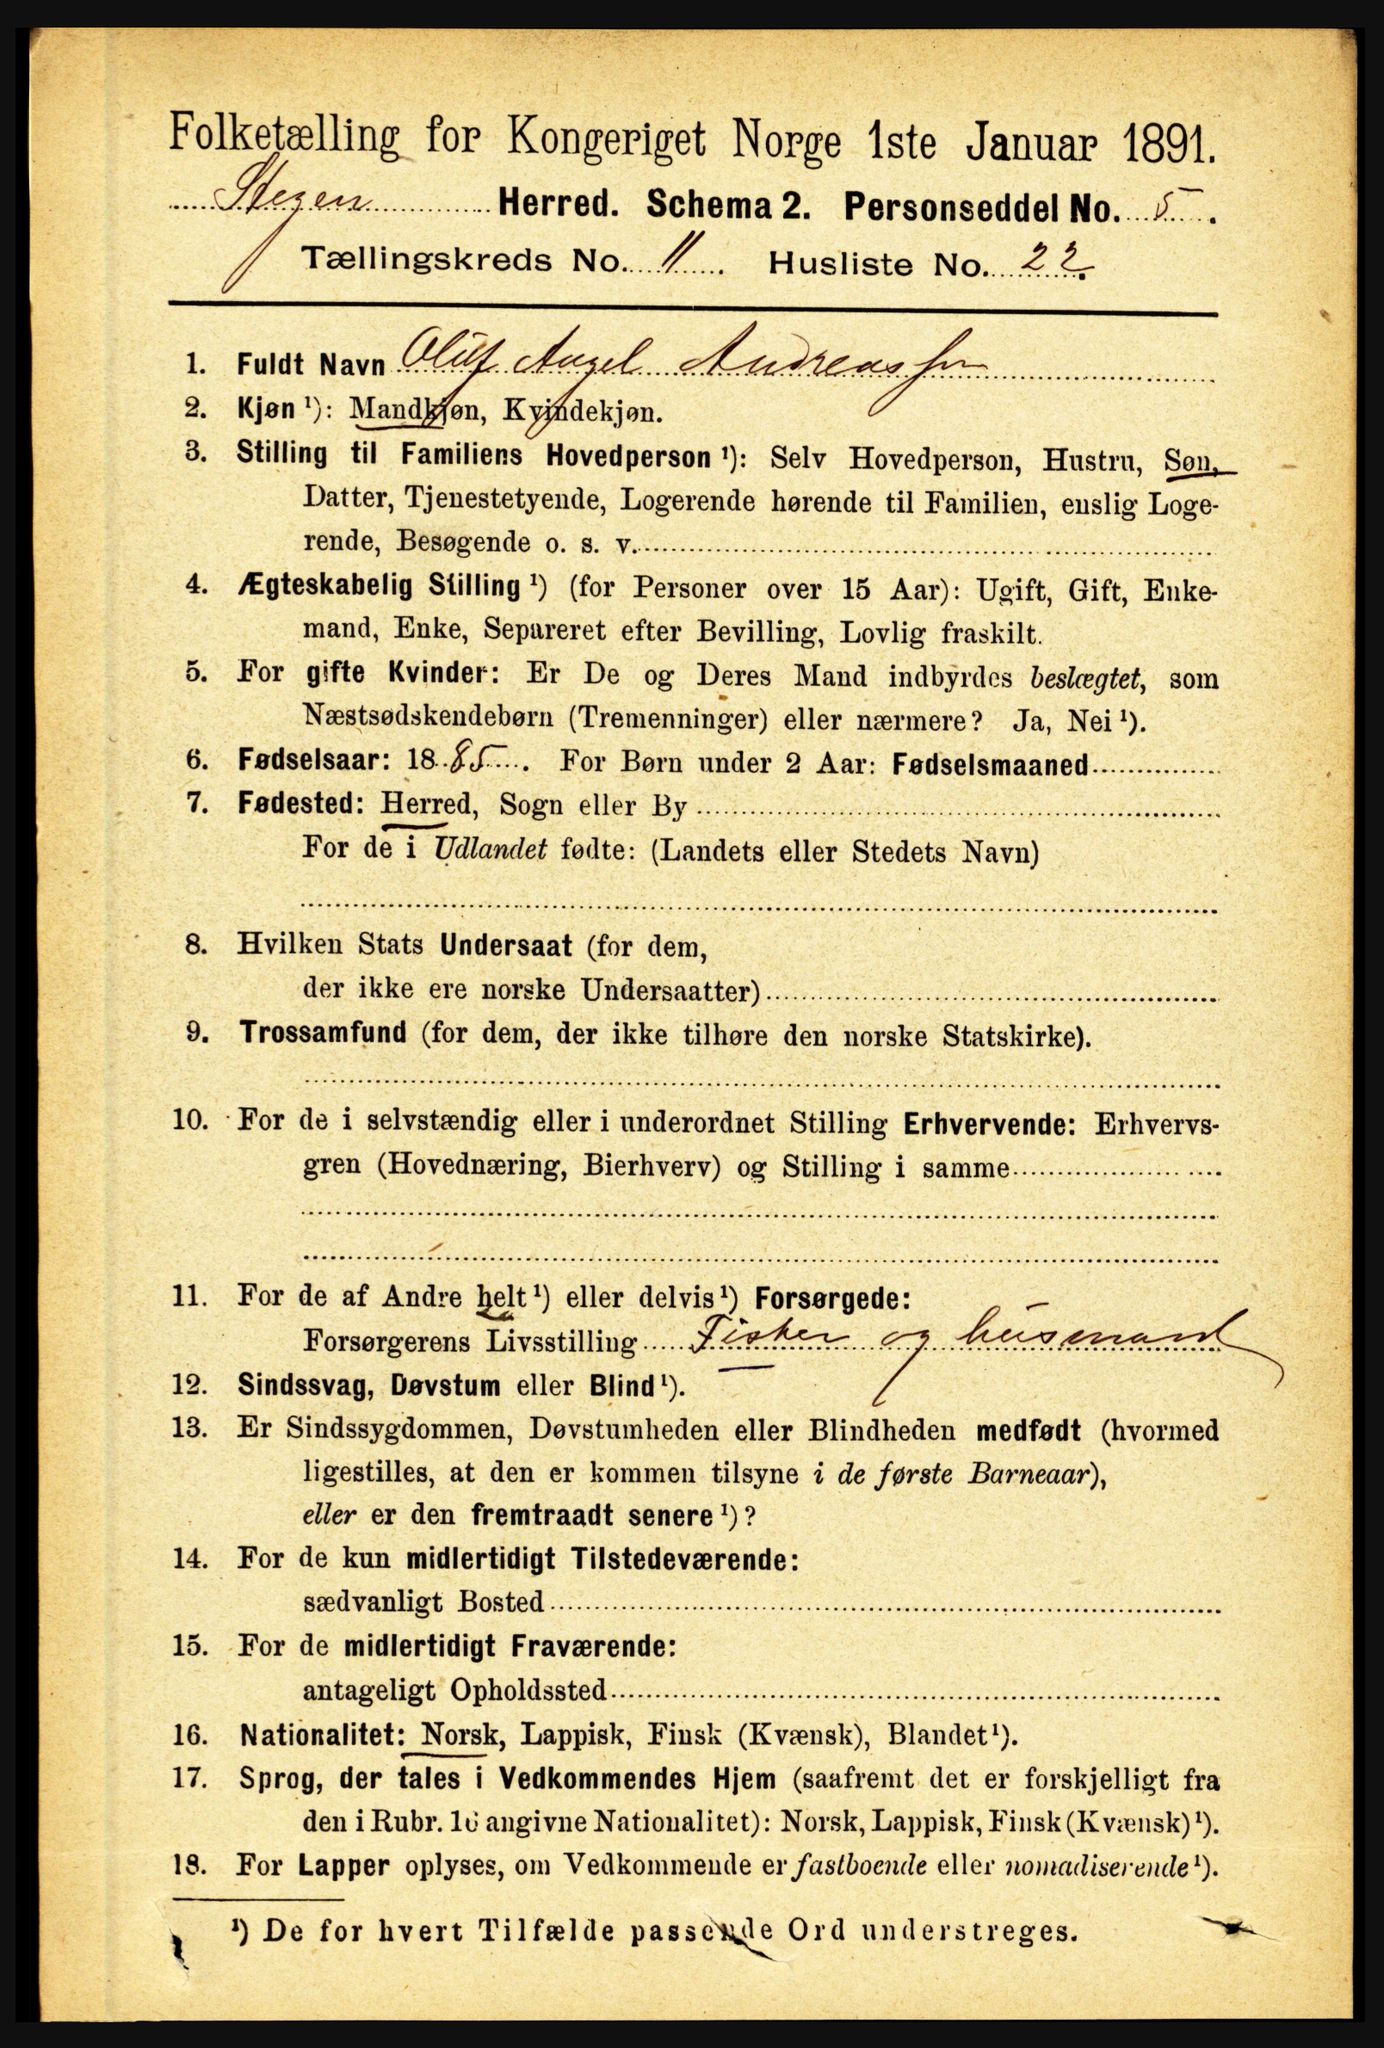 Folketælling for Kongeriget Norge 1ste Januar 1891.
Stegen Herred. Schema 2. Personseddel No. 5.
Tællingskreds No. 11. Husliste No. 22.
1. Fuldt Navn Oluf Angel Andreassen
2. Kjøn ¹): Mandkjøn, Kvindekjøn.
3. Stilling til Familiens Hovedperson ¹): Selv Hovedperson, Hustru, Søn,
Datter, Tjenestetyende, Logerende hørende til Familien, enslig Loge-
rende, Besøgende o. s. v.
4. Ægteskabelig Stilling ¹) (for Personer over 15 Aar): Ugift, Gift, Enke-
mand, Enke, Separeret efter Bevilling, Lovlig fraskilt.
5. For gifte Kvinder: Er De og Deres Mand indbyrdes beslægtet, som
Næstsødskendebørn (Tremenninger) eller nærmere? Ja, Nei ¹).
6. Fødselsaar: 1885. For Børn under 2 Aar: Fødselsmaaned
7. Fødested: Herred, Sogn eller By
For de i Udlandet fødte: (Landets eller Stedets Navn)
8. Hvilken Stats Undersaat (for dem,
der ikke ere norske Undersaatter)
9. Trossamfund (for dem, der ikke tilhøre den norske Statskirke).
10. For de i selvstændig eller i underordnet Stilling Erhvervende: Erhvervs-
gren (Hovednæring, Bierhverv) og Stilling i samme
11. For de af Andre helt ¹) eller delvis ¹) Forsørgede:
Forsørgerens Livsstilling Fisker og husmand
12. Sindssvag, Døvstum eller Blind ¹).
13. Er Sindssygdommen, Døvstumheden eller Blindheden medfødt (hvormed
ligestilles, at den er kommen tilsyne i de første Barneaar),
eller er den fremtraadt senere ¹)?
14. For de kun midlertidigt Tilstedeværende:
sædvanligt Bosted
15. For de midlertidigt Fraværende:
antageligt Opholdssted
16. Nationalitet: Norsk, Lappisk, Finsk (Kvænsk), Blandet ¹).
17. Sprog, der tales i Vedkommendes Hjem (saafremt det er forskjelligt fra
den i Rubr. 16 angivne Nationalitet): Norsk, Lappisk, Finsk (Kvænsk) ¹).
18. For Lapper oplyses, om Vedkommende er fastboende eller nomadiserende ¹).
¹) De for hvert Tilfælde passende Ord understreges.